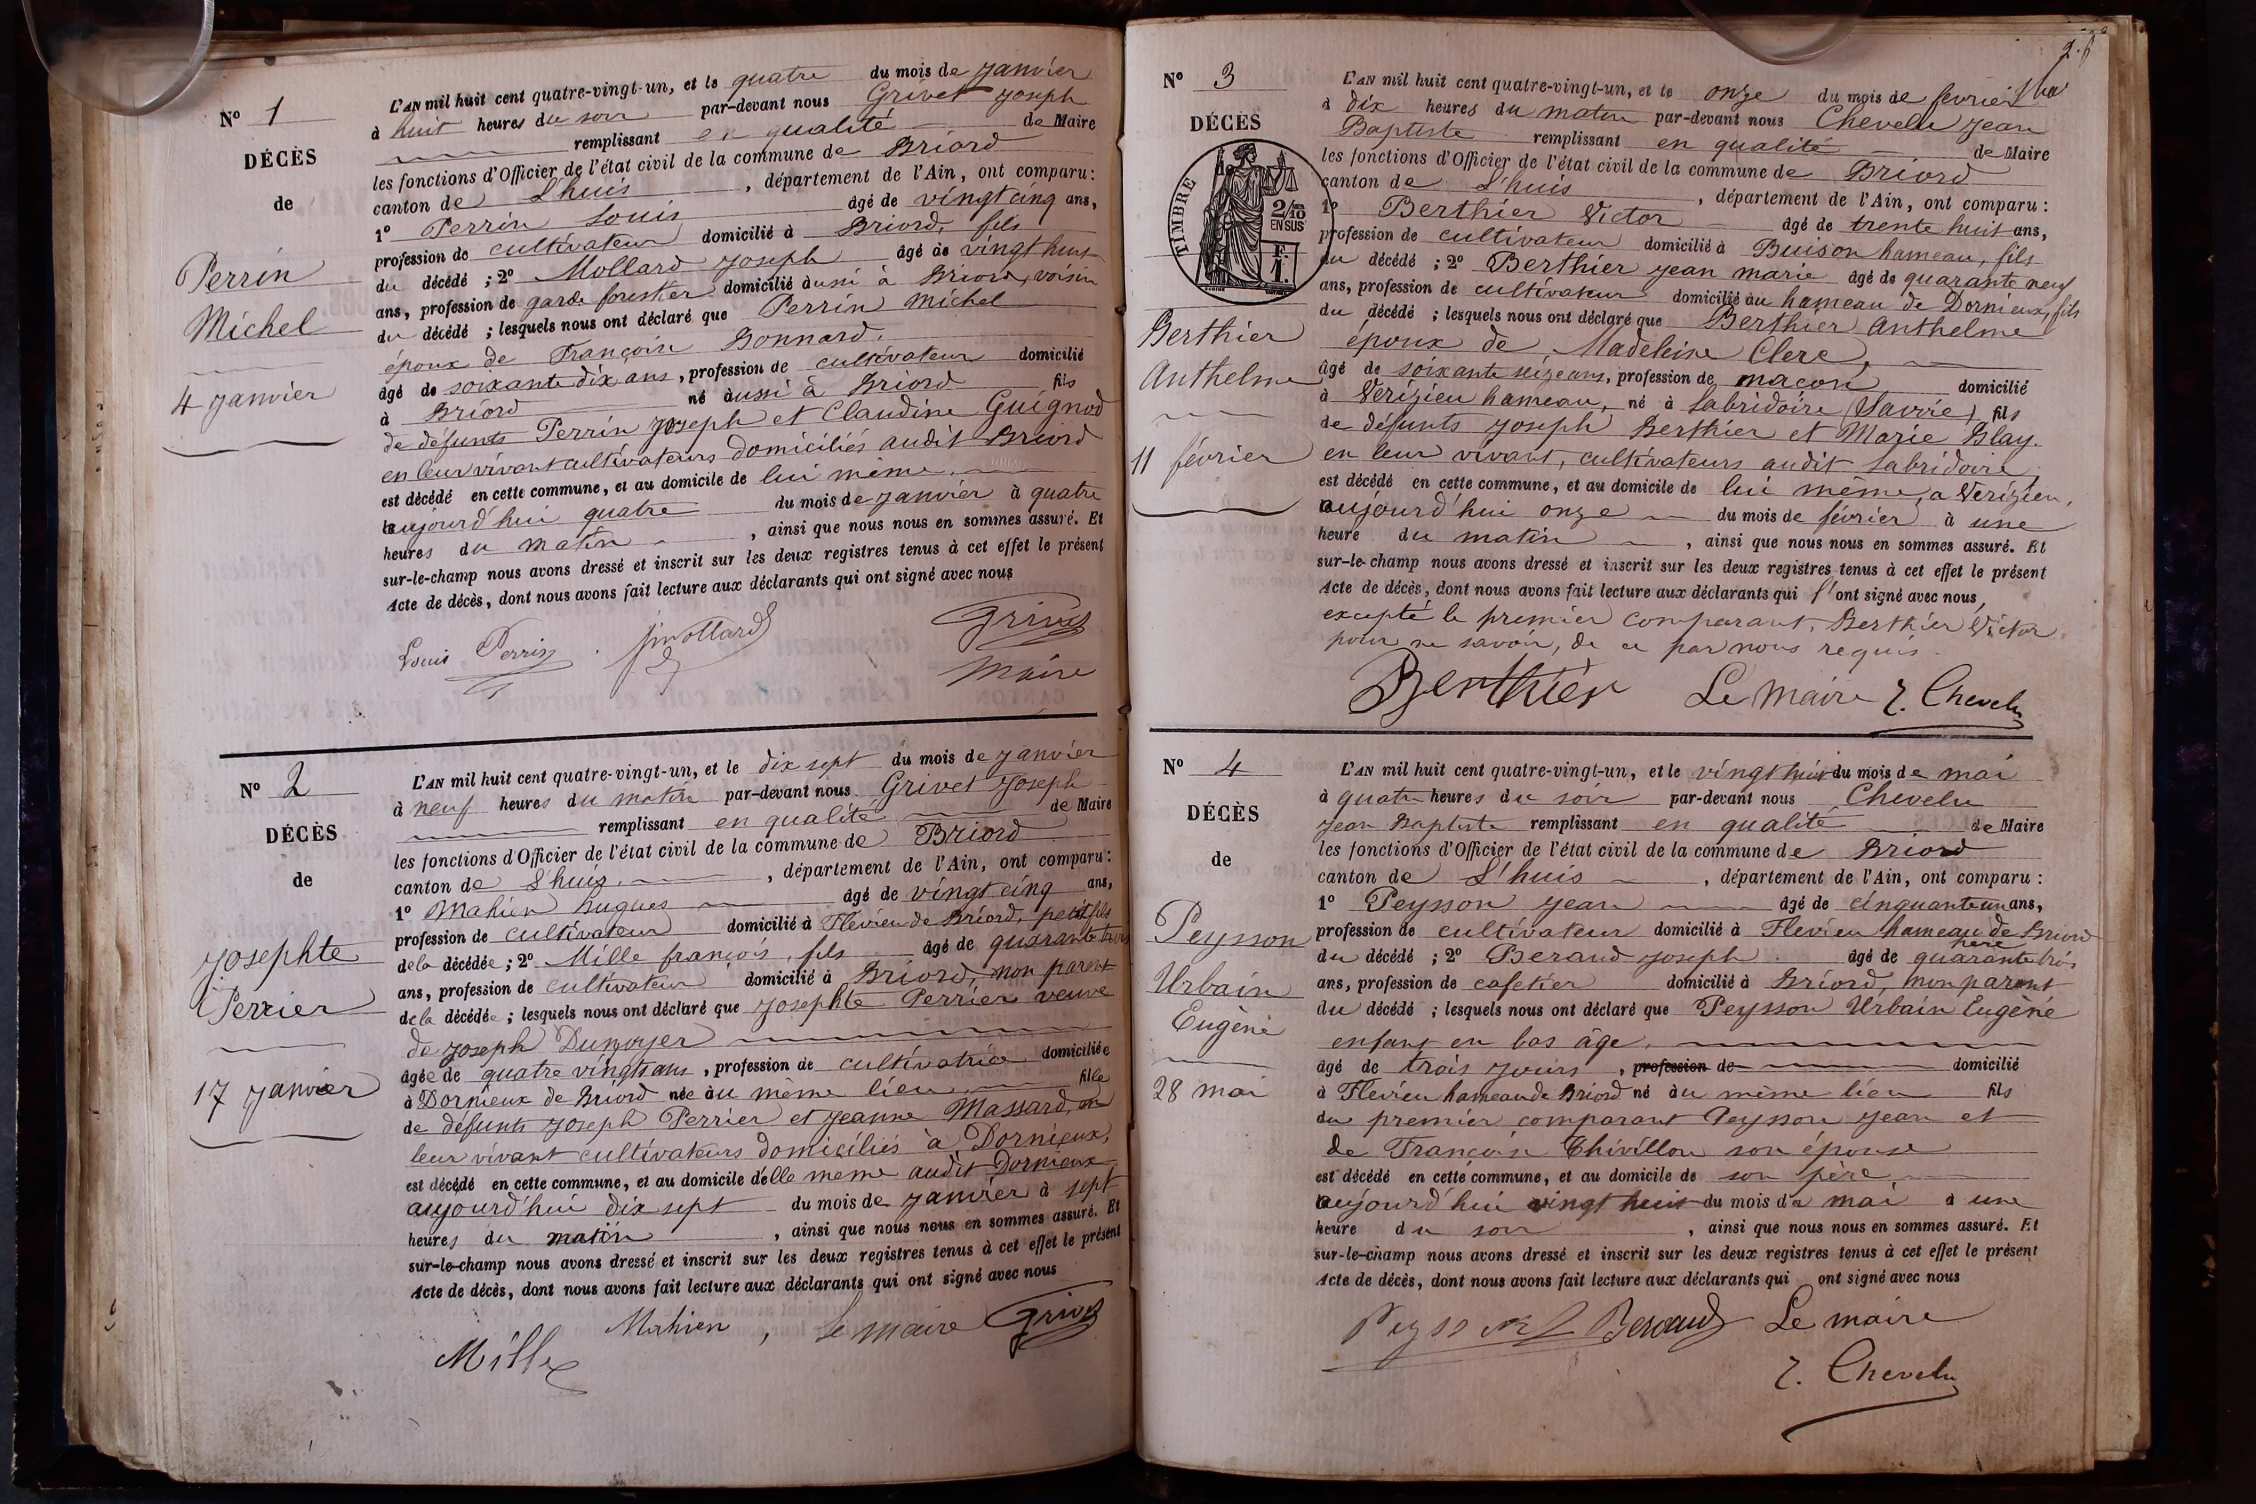 N° 1
DÉCÈS
de
Perrin
Michel
4 janvier
L'AN mil huit cent quatre-vingt-un, et le quatre du mois de janvier
à huit heures du soir par-devant nous Grivet Joseph
remplissant en qualité de Maire
les fonctions d'Officier de l'état civil de la commune de Briord
canton de L'huis, département de l'Ain, ont comparu:
1° Perrin Louis âgé de vingt cinq ans,
profession de cultivateur domicilié à Briord, fils
du décédé; 2° Mollard Joseph âgé de vingt huit
ans, profession de garde forestier domicilié aussi à Briord, voisin
du décédé; lesquels nous ont déclaré que Perrin Michel
époux de Françoise Bonnard.
âgé de soixante dix ans, profession de cultivateur domicilié
à Briord né aussi à Briord fils
de défunts Perrin Joseph et Claudine Guignod
en leur vivant cultivateurs domiciliés audit Briord
est décédé en cette commune, et au domicile de lui même,
aujourd'hui quatre du mois de janvier à quatre
heures du matin, ainsi que nous nous en sommes assuré. Et
sur-le-champ nous avons dressé et inscrit sur les deux registres tenus à cet effet le présent
Acte de décès, dont nous avons fait lecture aux déclarants qui ont signé avec nous
Louis Perrin Jh Mollard Grivet
Maire
N° 2
DÉCÈS
de
Josephte
Perrier
17 janvier
L'AN mil huit cent quatre-vingt-un, et le dix sept du mois de janvier
à neuf heures du matin par-devant nous Grivet Joseph
remplissant en qualité de Maire
les fonctions d'Officier de l'état civil de la commune de Briord
canton de L'huis, département de l'Ain, ont comparu:
1° Mahieu Hugues âgé de vingt cinq ans,
profession de cultivateur domicilié à Flévieu de Briord, petit fils
de la décédée; 2° Mille françois, fils âgé de quarante trois
ans, profession de cultivateur domicilié à Briord, non parent
de la décédée; lesquels nous ont déclaré que Josephte Perrier veuve
de Joseph Dunoyer
âgée de quatre vingts ans, profession de cultivatrice domiciliée
à Dornieux de Briord née au même lieu fille
de défunts Joseph Perrier et Jeanne Massard, en
leur vivant cultivateurs domiciliés à Dornieux,
est décédé en cette commune, et au domicile d'elle meme audit Dornieux
aujourd'hui dix sept du mois de janvier à sept
heures du matin, ainsi que nous nous en sommes assuré. Et
sur-le-champ nous avons dressé et inscrit sur les deux registres tenus à cet effet le présent
Acte de décès, dont nous avons fait lecture aux déclarants qui ont signé avec nous
Mille Mahieu, le maire Grivet
N° 3
DÉCÈS
TIMBRE
2/10 EN SUS
F. 1.
Berthier
Anthelme
11 février
L'AN mil huit cent quatre-vingt-un, et le onze du mois de février
à dix heures du matin par-devant nous Chevelu Jean
Baptiste remplissant en qualité de Maire
les fonctions d'Officier de l'état civil de la commune de Briord
canton de L'huis, département de l'Ain, ont comparu:
1° Berthier Victor âgé de trente huit ans,
profession de cultivateur domicilié à Buison hameau, fils
du décédé; 2° Berthier Jean marie âgé de quarante neuf
ans, profession de cultivateur domicilié au hameau de Dornieux, fils
du décédé; lesquels nous ont déclaré que Berthier Anthelme
époux de Madeleine Clerc,
âgé de soixante seize ans, profession de maçon domicilié
à Vérizieu hameau, né à Labridoire (Savoie) fils
de défunts Joseph Berthier et Marie Blay.
en leur vivant, cultivateurs audit Labridoire,
est décédé en cette commune, et au domicile de lui même, à Verizieu,
aujourd'hui onze du mois de février à une
heure du matin, ainsi que nous nous en sommes assuré. Et
sur-le-champ nous avons dressé et inscrit sur les deux registres tenus à cet effet le présent
Acte de décès, dont nous avons fait lecture aux déclarants qui l'ont signé avec nous,
excepté le premier comparant, Berthier Victor,
pour ne savoir, de ce par nous requis.
Berthier Le Maire J. Chevelu
N° 4
DÉCÈS
de
Peysson
Urbain
Eugène
28 mai
L'AN mil huit cent quatre-vingt-un, et le vingt huit du mois de mai
à quatre heures du soir par-devant nous Chevelu
Jean Baptiste remplissant en qualité de Maire
les fonctions d'Officier de l'état civil de la commune de Briord
canton de L'huis, département de l'Ain, ont comparu:
1° Peysson Jean âgé de cinquante un ans,
profession de cultivateur domicilié à Flevieu hameau de Briord
père
du décédé; 2° Beraud Joseph âgé de quarante trois
ans, profession de cafetier domicilié à Briord, non parent
du décédé; lesquels nous ont déclaré que Peysson Urbain Eugène
enfant en bas âge,
âgé de trois jours, profession de domicilié
à Flevieu hameau de Briord né au même lieu fils
du premier comparant Peysson Jean et
de Françoise Thévillon son épouse
est décédé en cette commune, et au domicile de son père
aujourd'hui vingt huit du mois de mai à une
heure du soir, ainsi que nous nous en sommes assuré. Et
sur-le-champ nous avons dressé et inscrit sur les deux registres tenus à cet effet le présent
Acte de décès, dont nous avons fait lecture aux déclarants qui ont signé avec nous
Peysson Beraud Le maire
J. Chevelu